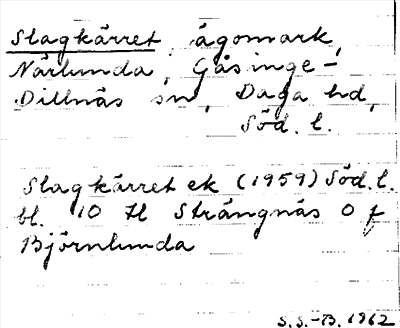 Slagkärret, ägomark,
Närlunda, Gåsinge-
Dillnäs sn, Daga hd,
Söd. l.
Slagkärret ek (1959) Söd. l.
bl. 10 H Strängnäs O f
Björnlunda
S.S.-B. 1962